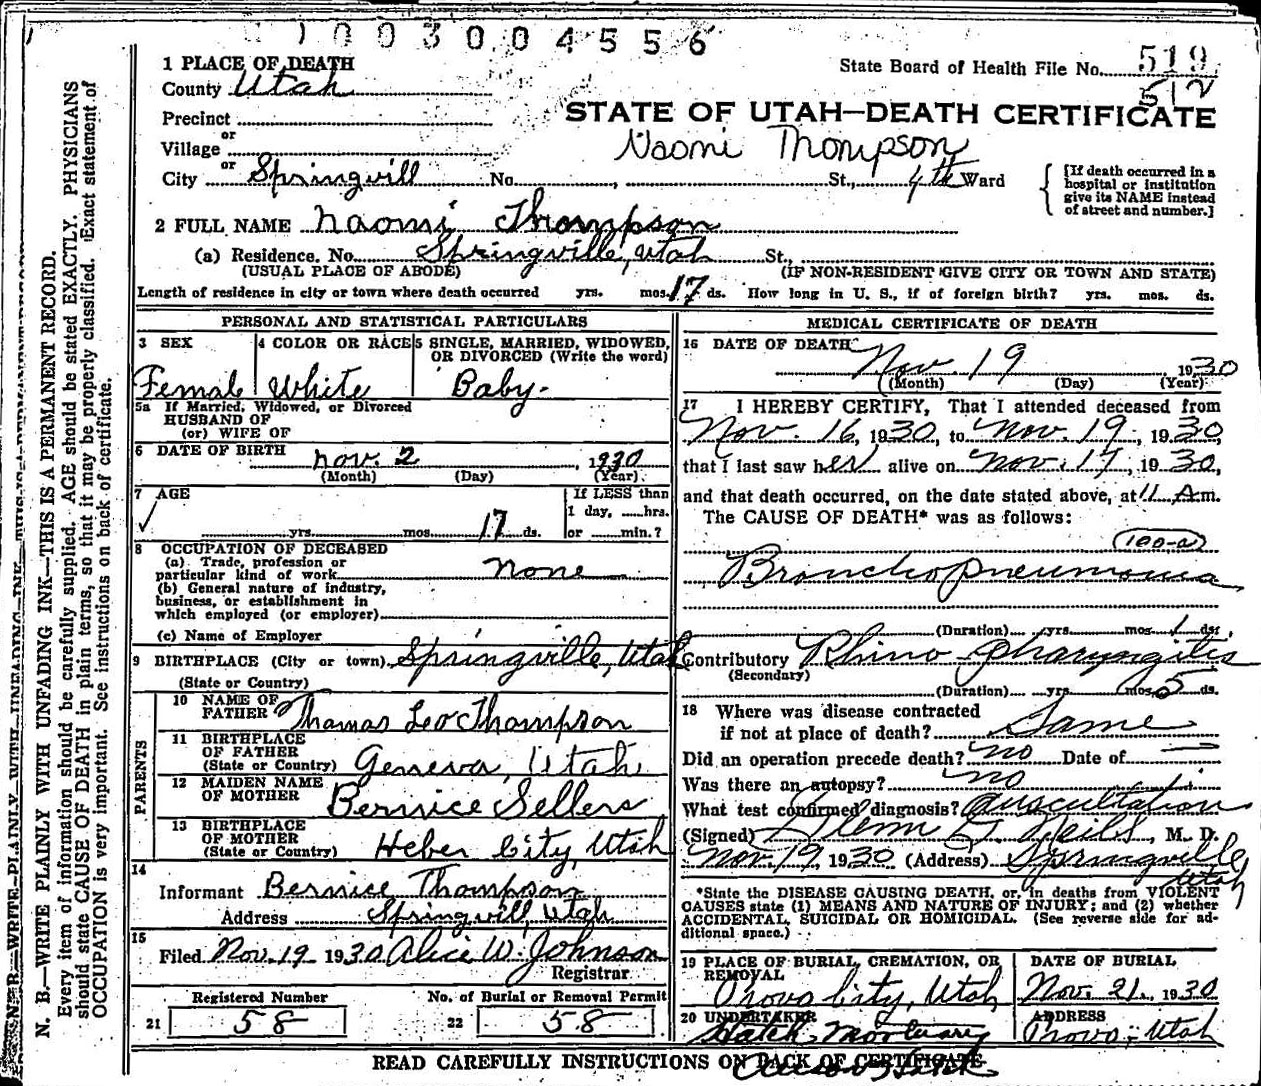 1003004556
1 PLACE OF DEATH
State Board of Health File No. 519
512
County Utah
STATE OF UTAH—DEATH CERTIFICATE
Precinct
or
Village
Naomi Thompson
or
City Springvill No. , St., 4th Ward
[If death occurred in a
hospital or institution
give its NAME instead
of street and number.]
2 FULL NAME Naomi Thompson
(a) Residence. No. Springville, Utah St.,
(USUAL PLACE OF ABODE) (IF NON-RESIDENT GIVE CITY OR TOWN AND STATE)
Length of residence in city or town where death occurred yrs. mos. 17 ds. How long in U. S., if of foreign birth? yrs. mos. ds.
PERSONAL AND STATISTICAL PARTICULARS
3 SEX
Female
4 COLOR OR RACE
White
5 SINGLE, MARRIED, WIDOWED,
OR DIVORCED (Write the word)
Baby-
5a If Married, Widowed, or Divorced
HUSBAND OF
(or) WIFE OF
6 DATE OF BIRTH
Nov. 2, 1930
(Month) (Day) (Year)
7 AGE
yrs. mos. 17 ds.
If LESS than
1 day, hrs.
or min.?
8 OCCUPATION OF DECEASED
(a) Trade, profession or
particular kind of work none
(b) General nature of industry,
business, or establishment in
which employed (or employer)
(c) Name of Employer
9 BIRTHPLACE (City or town) Springville, Utah
(State or Country)
PARENTS
10 NAME OF
FATHER Thomas Leo Thompson
11 BIRTHPLACE
OF FATHER
(State or Country) Geneva, Utah
12 MAIDEN NAME
OF MOTHER Bernice Sellers
13 BIRTHPLACE
OF MOTHER
(State or Country) Heber City, Utah
14
Informant Bernice Thompson
Address Springvill, Utah
15
Filed Nov. 19 1930 Alice W. Johnson
Registrar
Registered Number No. of Burial or Removal Permit
21 58 22 58
MEDICAL CERTIFICATE OF DEATH
16 DATE OF DEATH
Nov. 19 1930
(Month) (Day) (Year)
17 I HEREBY CERTIFY, That I attended deceased from
Nov. 16, 1930, to Nov. 19, 1930,
that I last saw her alive on Nov. 17, 1930,
and that death occurred, on the date stated above, at 11 A.m.
The CAUSE OF DEATH* was as follows:
100-a
Bronchopneumonia
(Duration) yrs. mos. 1 ds.
Contributory Rhino-pharyngitis
(Secondary)
(Duration) yrs. mos. 5 ds.
18 Where was disease contracted
if not at place of death? Same
Did an operation precede death? no Date of —
Was there an autopsy? no
What test confirmed diagnosis? Auscultation
(Signed) Glenn, M. D.
Nov. 19, 1930 (Address) Springville,
Utah
*State the DISEASE CAUSING DEATH, or, in deaths from VIOLENT
CAUSES state (1) MEANS AND NATURE OF INJURY; and (2) whether
ACCIDENTAL, SUICIDAL OR HOMICIDAL. (See reverse side for ad-
ditional space.)
19 PLACE OF BURIAL, CREMATION, OR
REMOVAL
Provo City, Utah
DATE OF BURIAL
Nov. 21, 1930
20 UNDERTAKER
Hatch Mortuary
ADDRESS
Provo, Utah
READ CAREFULLY INSTRUCTIONS ON BACK OF CERTIFICATE
N. B.—WRITE PLAINLY WITH UNFADING INK—THIS IS A PERMANENT RECORD.
Every item of information should be carefully supplied. AGE should be stated EXACTLY. PHYSICIANS
should state CAUSE OF DEATH in plain terms, so that it may be properly classified. Exact statement of
OCCUPATION is very important. See instructions on back of certificate.